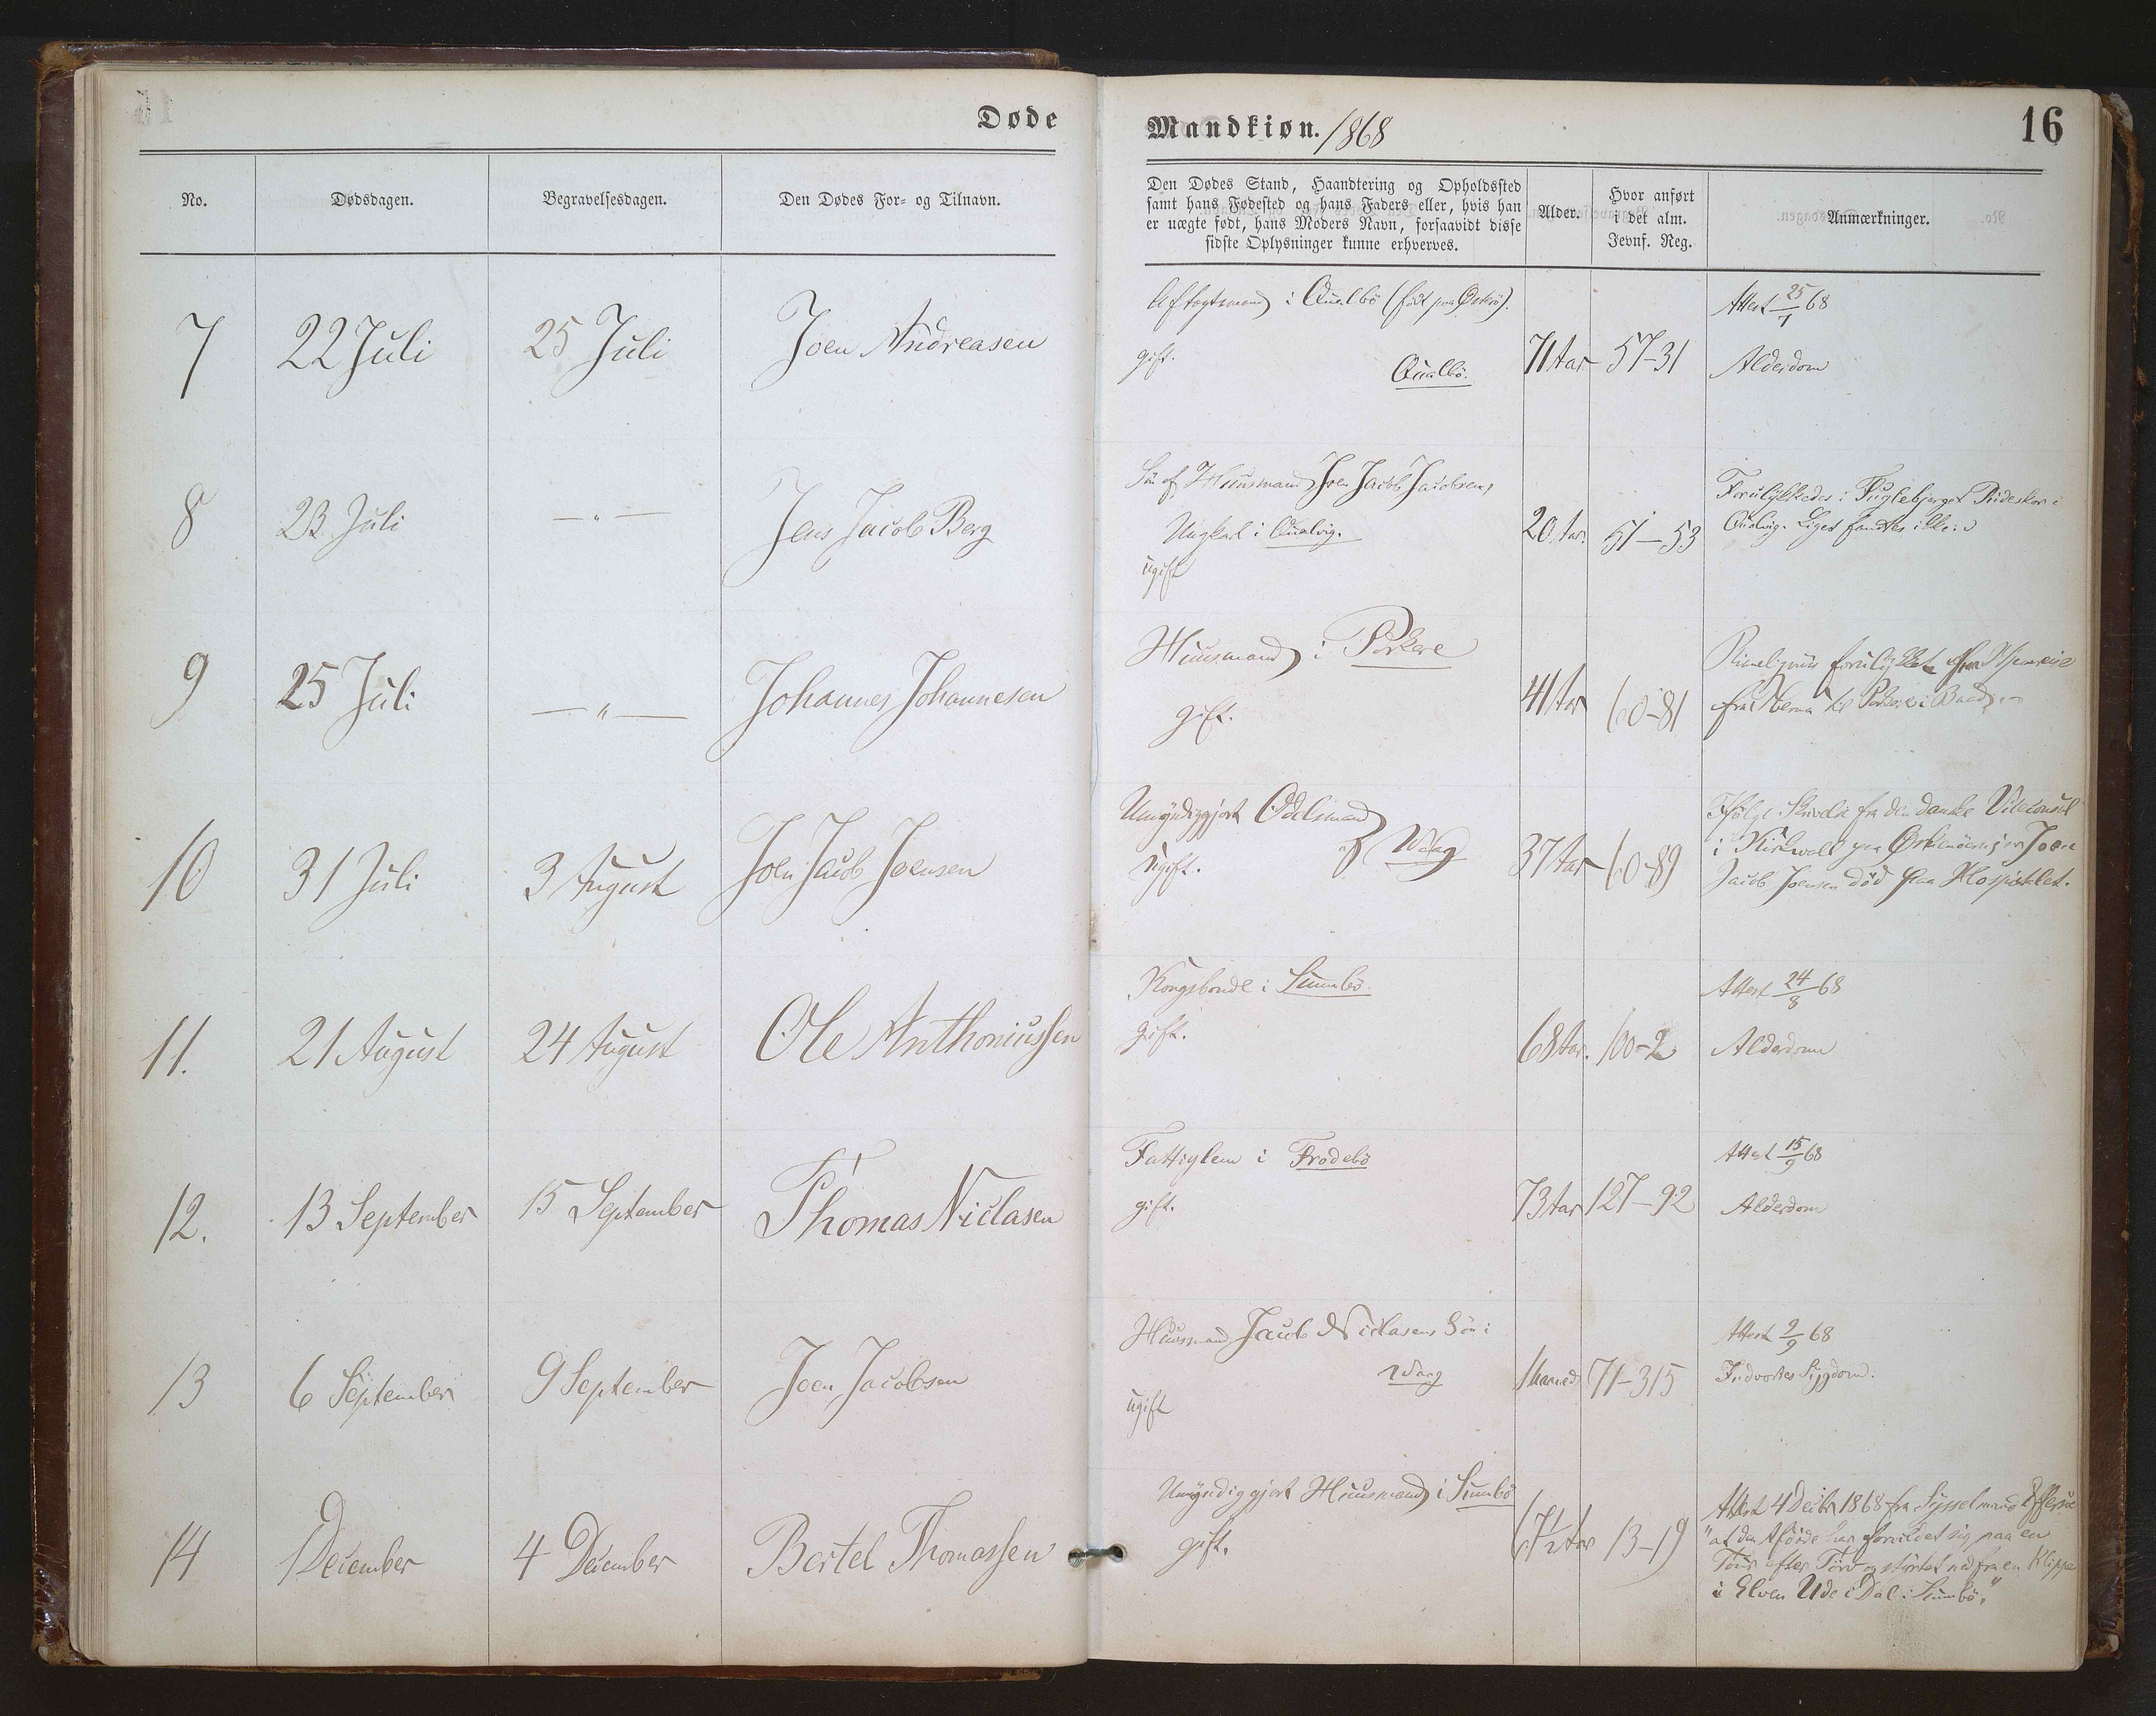 Døde
Mandkiøn. 1868
16
No.
Dødsdagen.
Begravelsesdagen.
Den Dødes For- og Tilnavn.
Den Dødes Stand, Haandtering og Opholdssted
samt hans Fødested og hans Faders eller, hvis han
er uægte født, hans Moders Navn, forsaavidt disse
sidste Oplysninger kunne erhverves.
Alder.
Hvor anført
i det alm.
Jevnf. Reg.
Anmærkninger.
7
22 Juli
25 Juli
Joen Andreasen
Aftægtsmand i Qualbö (født paa Österö).
gift.
Qualbö.
71 Aar
57-31
Attest 25/7 68
Alderdom
8
23 Juli
— " —
Jens Jacob Berg
Sön af Huusmand Joen Jacob Jacobsen,
Ungkarl i Qualvig.
ugift
20 Aar.
51-53
Forulykkedes i Fuglebjerget i
Qualvig. Liget fandtes ikke.
9
25 Juli
— " —
Johannes Johannesen
Huusmand i Porkere
gift.
41 Aar
60-81
Rimeligviis forulykket paa Hjemreise
fra til Porkere i Baad
10
31 Juli
3 August
Joen Jacob Joensen
Umyndiggjort Odelsmand
af Waag
ugift.
37 Aar
60-89
Ifölge Skrivelse fra den danske Viceconsul
i Kirkwall paa Orkenöerne er Joen
Jacob Joensen död paa Hospitalet.
11.
21 August
24 August
Ole Anthoniussen
Kongsbonde i Sumbö.
gift.
68 Aar.
100-2
Attest 24/8 68
Alderdom
12.
13 September
15 September
Thomas Niclasen
Fattiglem i Frodebö
gift.
73 Aar
127-92
Attest 15/9 68
Alderdom
13
6 September
9 September
Joen Jacobsen
Huusmand Jacob Niclasens Sön i
Waag
ugift
1 Maaned
71-315
Attest 9/9 68
Indvortes Sygdom.
14
1 December
4 December
Bertel Thomassen
Umyndiggjort Huusmand i Sumbö
gift.
67½ Aar
13-19
Attest 4 Decbr 1868 fra Sysselmand
"at den Afdöde har forvildet sig paa en
Tour efter Törv og styrtet ned fra en Klippe
i Elven Ude i Dal i Sumbö."